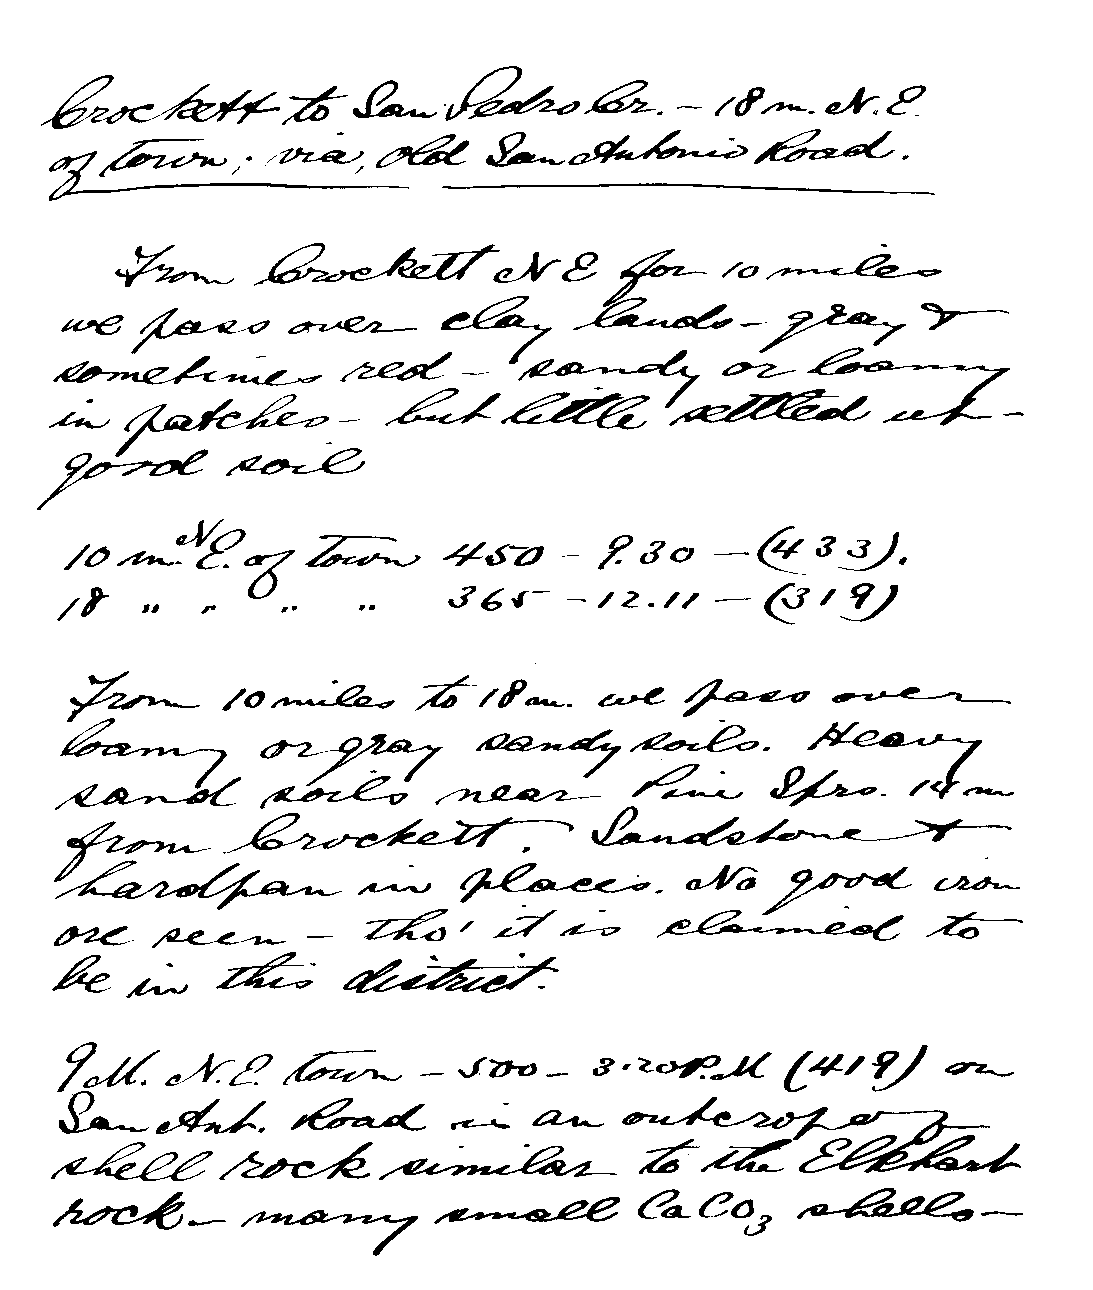 Crockett to San Pedro Cr. – 18 m. N. E.
of town; via, Old San Antonio Road.
From Crockett N E for 10 miles
we pass over clay lands – gray &
sometimes red – sandy or loamy
in patches – but little settled up –
good soil
10 m. N.E. of town 450 – 9.30 – (433).
18 " " " " 365 – 12.11 – (319)
From 10 miles to 18 m. we pass over
loamy or gray sandy soils. Heavy
sand soils near Pine Sprs. 14 m
from Crockett. Sandstone &
hardpan in places. No good iron
ore seen – tho' it is claimed to
be in this district.
9 M. N.E. town – 500 – 3.20 P.M (419) on
San Ant. Road is an outcrop of
shell rock similar to the Elkhart
rock – many small CaCO₃ shells –